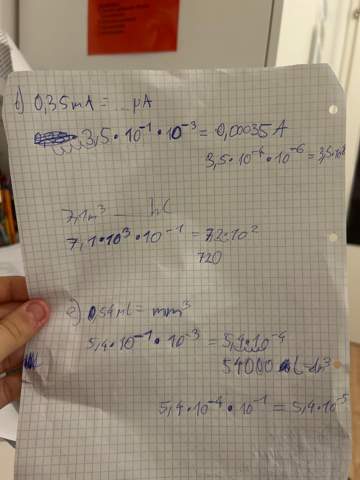 b) 0,35 mA = _ μA
3,5·10⁻¹·10⁻³ = 0,00035 A
3,5·10⁻⁴·10⁻⁶ = 3,5·10
7,1m³ _ hl
7,1·10³·10⁻¹ = 7,2·10²
720
e) 0,54 ml = mm³
5,4·10⁻¹·10⁻³ = 5,4·10⁻⁴
54000 dm³
5,4·10⁻⁴·10⁻¹ = 5,4·10⁻⁵